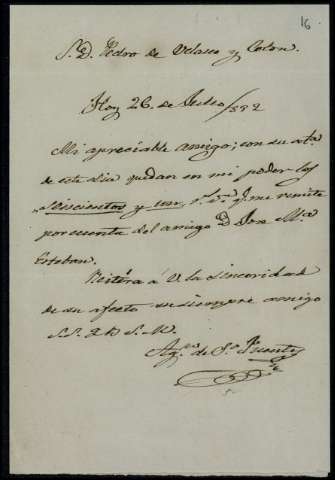 16
S. D. Pedro de Velasco y Colon.
Hoy 26 de Julio/832
Mi apreciable amigo; con su at.ª
de este dia quedan en mi poder los
seiscientos y un r.s v.n q.e me remite
por cuenta del amigo D. Jose M.ª
Esteban.
Reitéra á V. la sinceridad
de su afecto su siempre amigo
Q. B. S. M.
de Puente